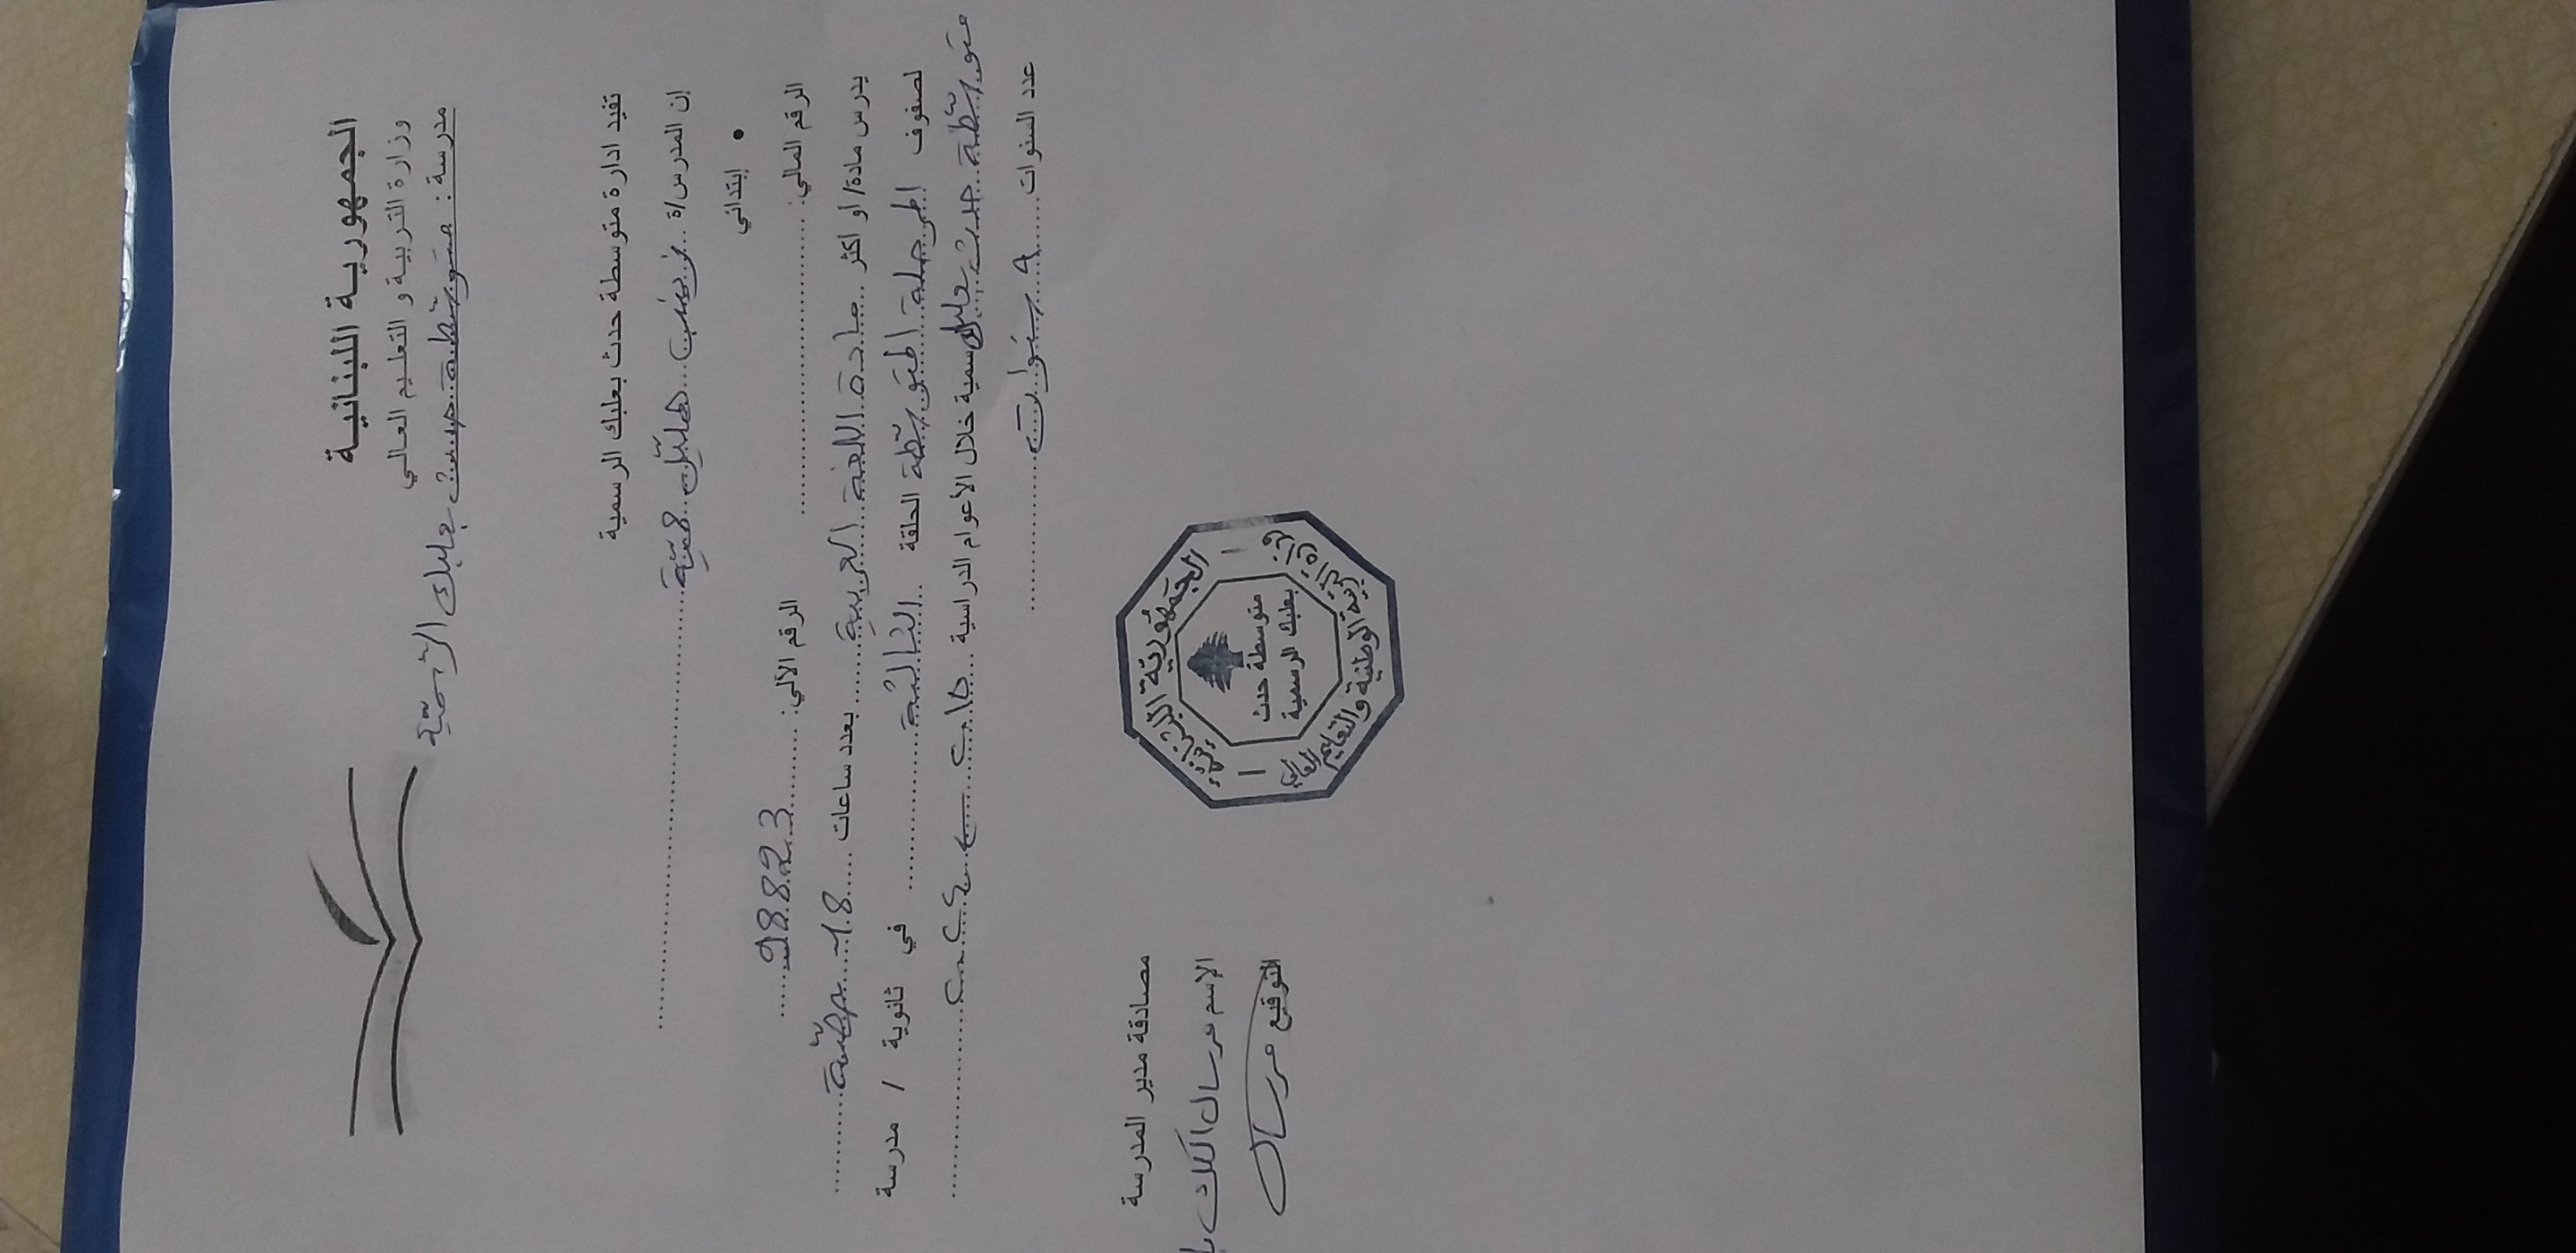 الجمهورية اللبنانية
وزارة التربية و التعليم العالي
مدرسة : متوسّطة حدث بعلبك الرّسميّة
تفيد ادارة متوسطة حدث بعلبك الرسمية
إن المدرس/ة زينب
• إبتدائي
الرقم المالي: الرقم الآلي: 98823
يدرس مادة/ أو أكثر مادة اللغة العربية بعدد ساعات 18 حصّة
لصفوف المرحلة المتوسّطة الحلقة الثالثة في ثانوية / مدرسة
متوسّطة حدث بعلبك الرسمية خلال الأعوام الدراسية
عدد السنوات ٩ سنوات
مصادقة مدير المدرسة
الإسم مرسال
التوقيع مرسال
الجمهورية اللبنانية
متوسطة حدث
بعلبك الرسمية
وزارة التربية الوطنية والتعليم العالي